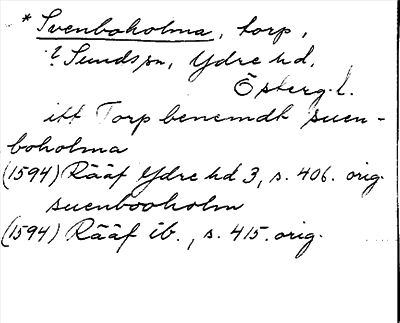 * Svenboholma, torp,
? Sunds sn, Ydre hd,
Österg.l.
itt Torp benemdt suen-
boholma
(1594) Rääf Ydre hd 3, s. 406. orig.
suenbooholm
(1594) Rääf ib., s. 415. orig.